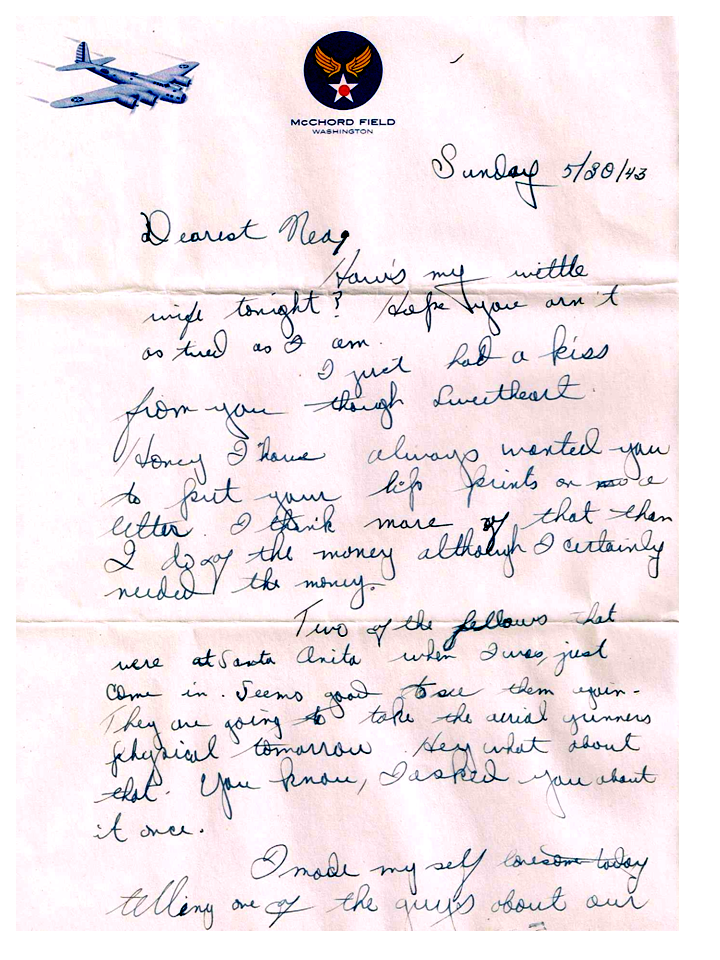 McCHORD FIELD
WASHINGTON
Sunday 5/30/43
Dearest Neag,
How's my wittle
wife tonight? Hope you arn't
as tired as I am.
I just had a kiss
from you though Sweetheart.
Honey I have always wanted you
to put your lip prints on a
letter. I think more of that than
I do of the money although I certainly
needed the money.
Two of the fellows that
were at Santa Anita when I was, just
come in. Seems good to see them again.
They are going to take the aerial gunners
physical tomorrow. Hey what about
that. You know, I asked you about
it once.
I made my self lonesome today
telling one of the guys about our